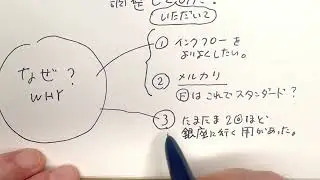 いただいて
なぜ?
WHY
① インクフローを
よりよくしたい。
② メルカリ
Ⓕはこれでスタンダード?
③ たまたま2回ほど
銀座に行く用があった。